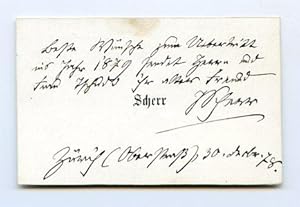 Beste Wünsche zum Uebertritt
ins Jahr 1879 sendet Herrn und
Frau Tschudi ihr alter Freund
Scherr
JScherr
Zürich (Oberstraß), 30. Debr. 78.